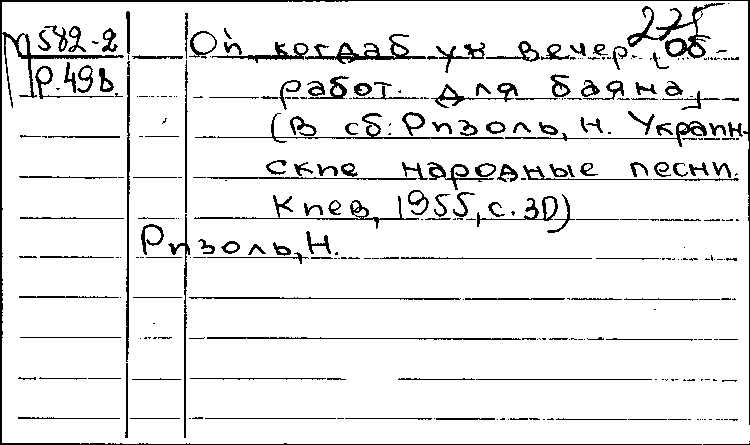 275
М 582-2
Р.49в.
Ой, когдаб уж вечер. [Об-
работ. для баяна]
(В сб: Ризоль, Н. Украин-
ские народные песни.
Киев, 1955, с. 30)
Ризоль, Н.